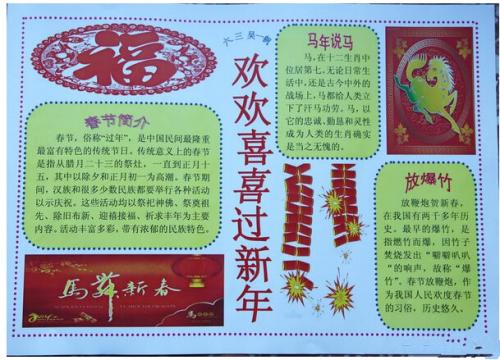 福
六三 吴一钒
欢欢喜喜过新年
春节简介
春节，俗称“过年”，是中国民间最隆重
最富有特色的传统节日。传统意义上的春节
是指从腊月二十三的祭灶，一直到正月十
五，其中以除夕和正月初一为高潮。春节期
间，汉族和很多少数民族都要举行各种活动
以示庆祝。这些活动均以祭祀神佛、祭奠祖
先、除旧布新、迎禧接福、祈求丰年为主要
内容。活动丰富多彩，带有浓郁的民族特色。
馬舞新春
马年说马
马，在十二生肖中
位居第七。无论日常生
活中，还是古今中外的
战场上，马都给人类立
下了汗马功劳。马，以
它的忠诚、勤恳和灵性
成为人类的生肖确实
是当之无愧的。
放爆竹
放鞭炮贺新春，
在我国有两千多年历
史。最早的爆竹，是
指燃竹而爆，因竹子
焚烧发出“噼噼叭叭
”的响声，故称“爆
竹”。春节放鞭炮，作
为我国人民欢度春节
的习俗，历史悠久。